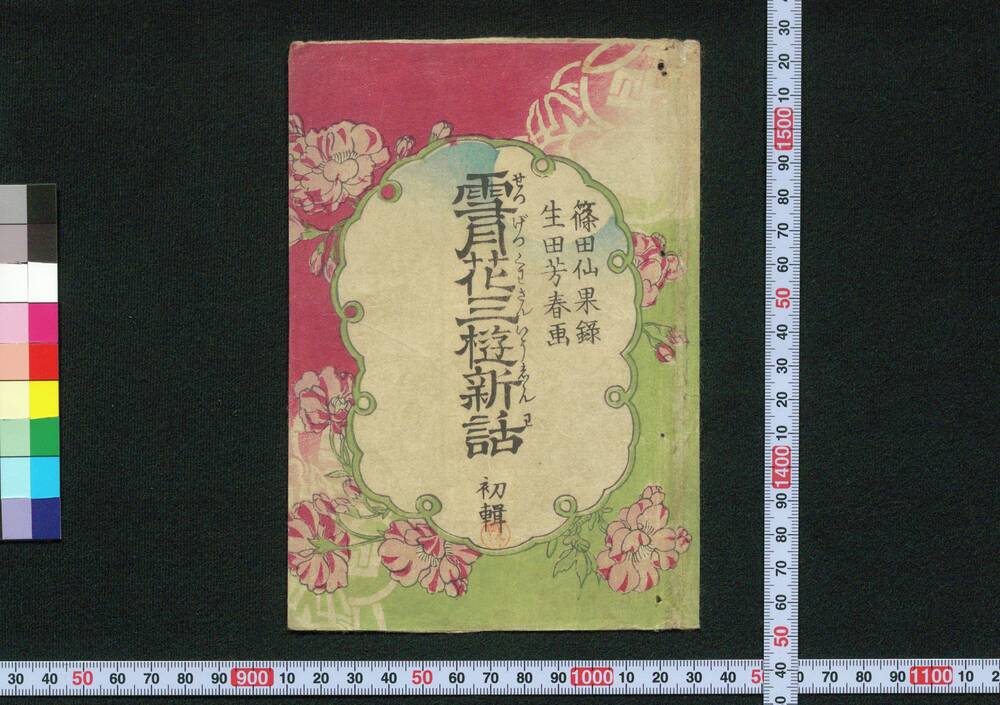 篠田仙果錄
生田芳春画
せつげつくわさんいうしんわ
雪月花三遊新話
初輯
30 20 10 1500 90 80 70 60 50 40 30 20 10 1400 90 80 70 60 50 40
30 40 50 60 70 80 90 900 10 20 30 40 50 60 70 80 90 1000 10 20 30 40 50 60 70 80 90 1100 10